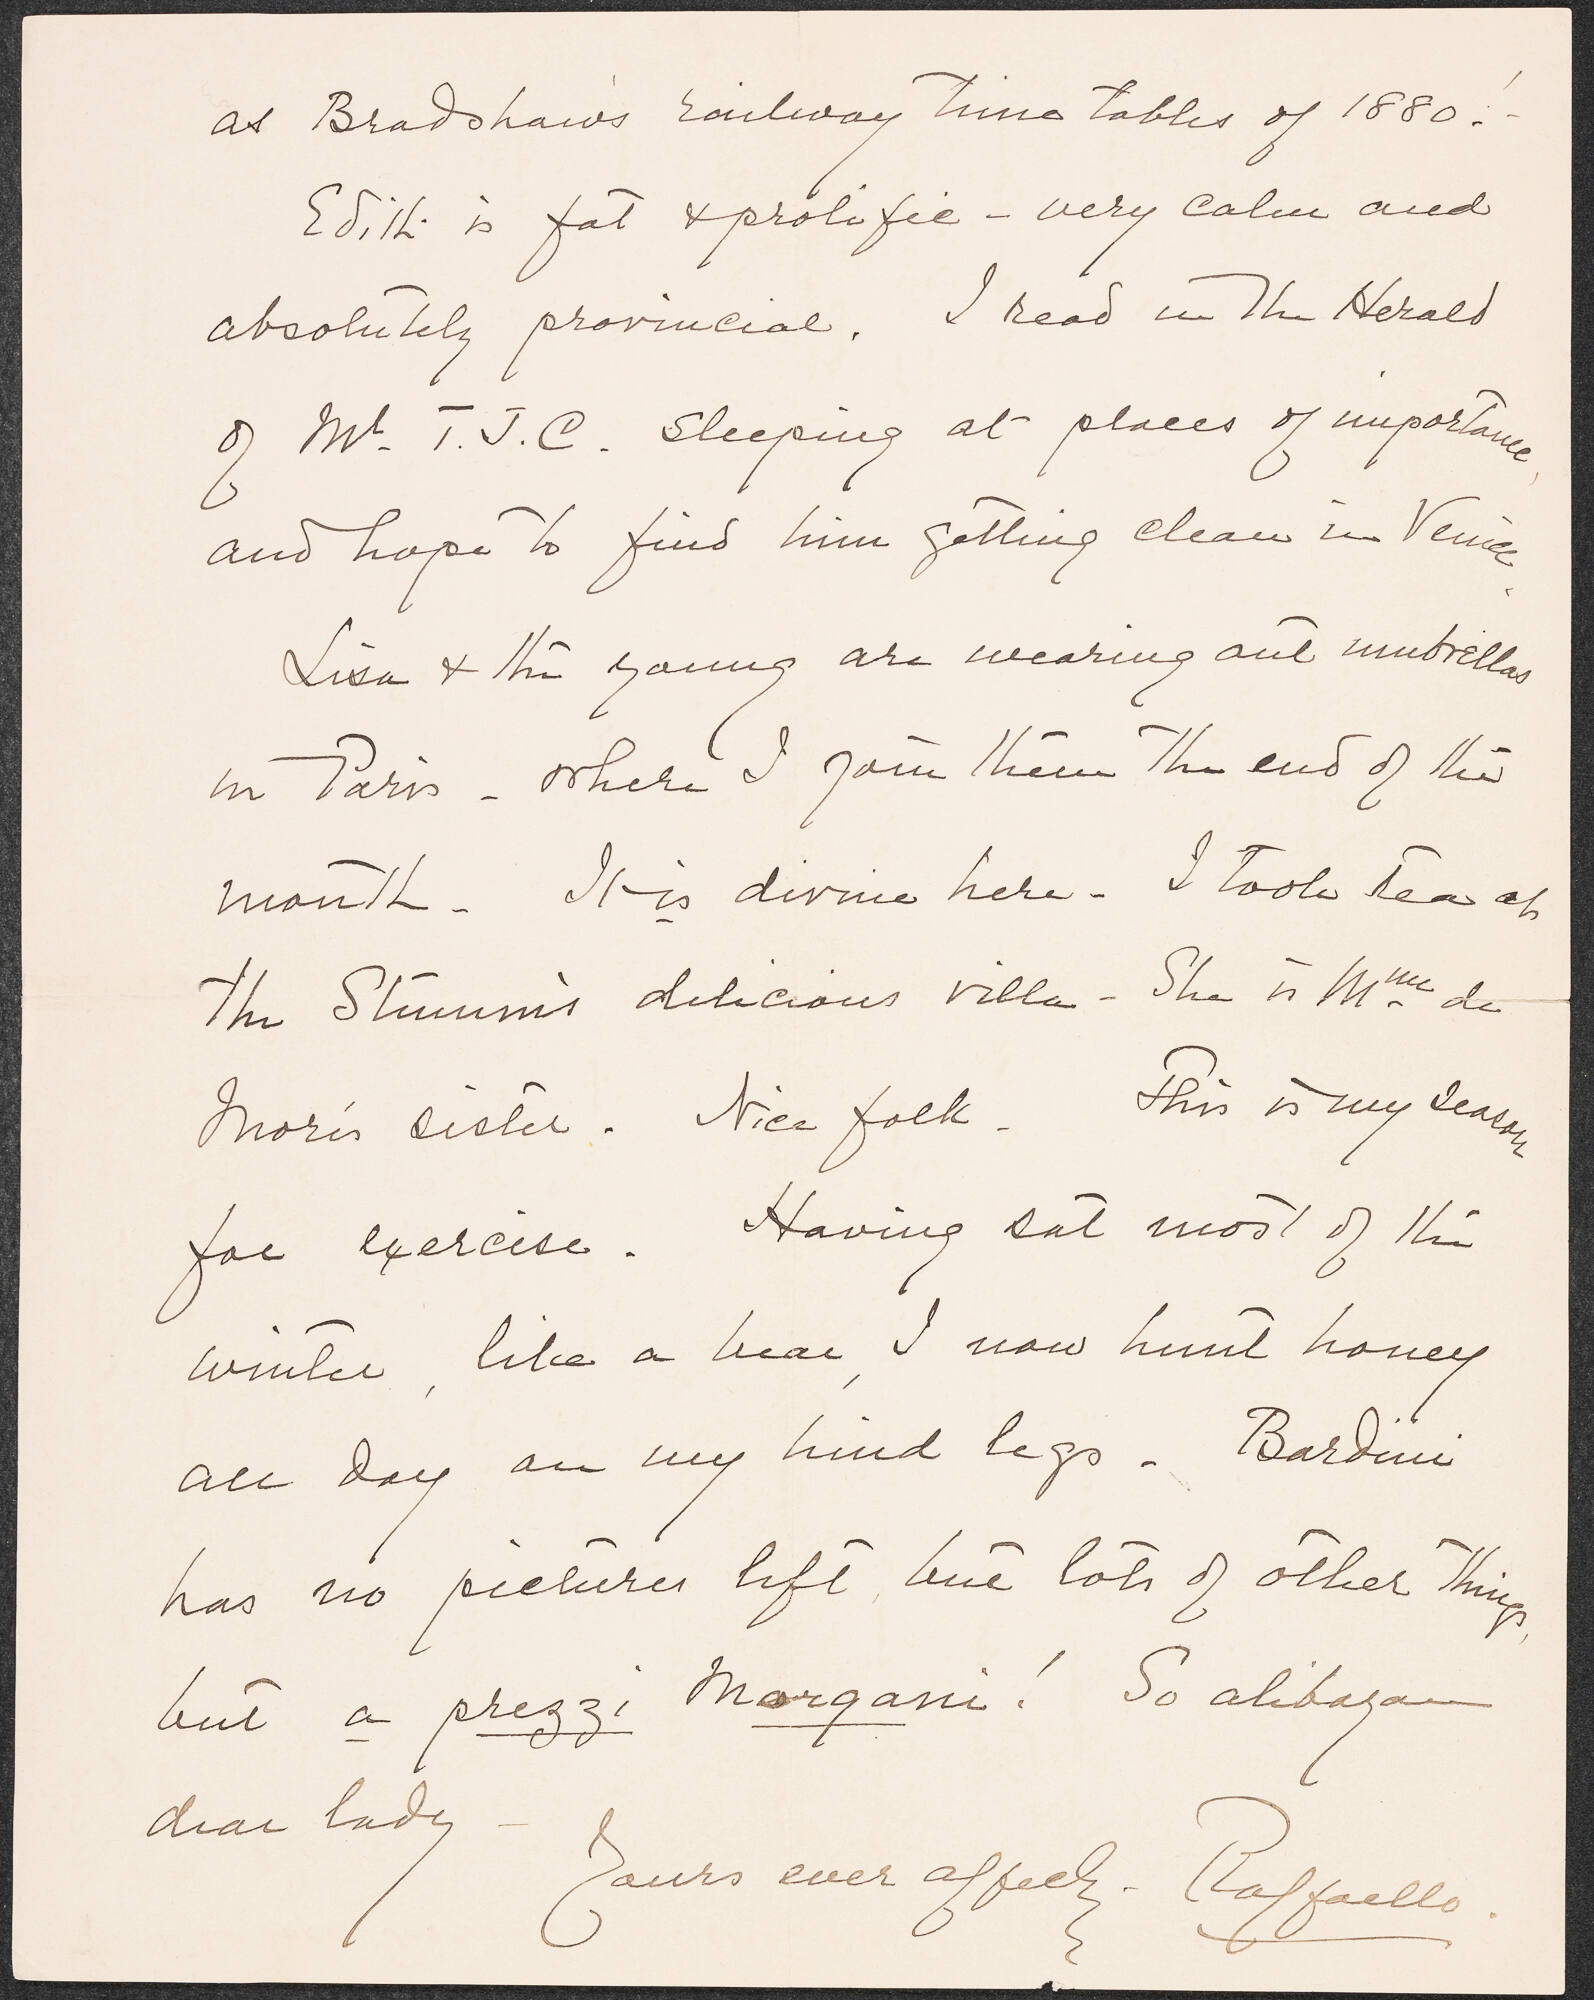 as Bradshaw's railway time tables of 1880!-
Edith is fat & prolific - very calm and
absolutely provincial. I read in the Herald
of Mr. T.J.C. sleeping at places of importance,
and hope to find him getting clean in Venice.
Lisa & the young are wearing out umbrellas
in Paris - where I join them the end of the
month - It is divine here - I took tea at
the Stumm's delicious villa - She is Mme de
Mor's sister. Nice folk - This is my season
for exercise. Having sat most of the
winter, like a bear, I now hunt honey
all day on my hind legs - Bardini
has no pictures left, but lots of other things,
but a prezzi Morgani! So
dear lady -
Yours ever affecly - Raffaello.